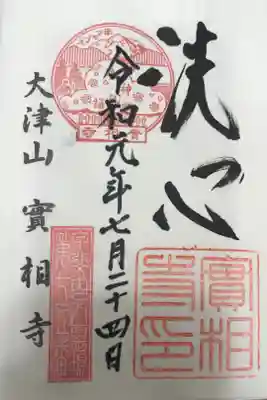 洗心
令和元年七月二十四日
大津山 實相寺
實相寺印